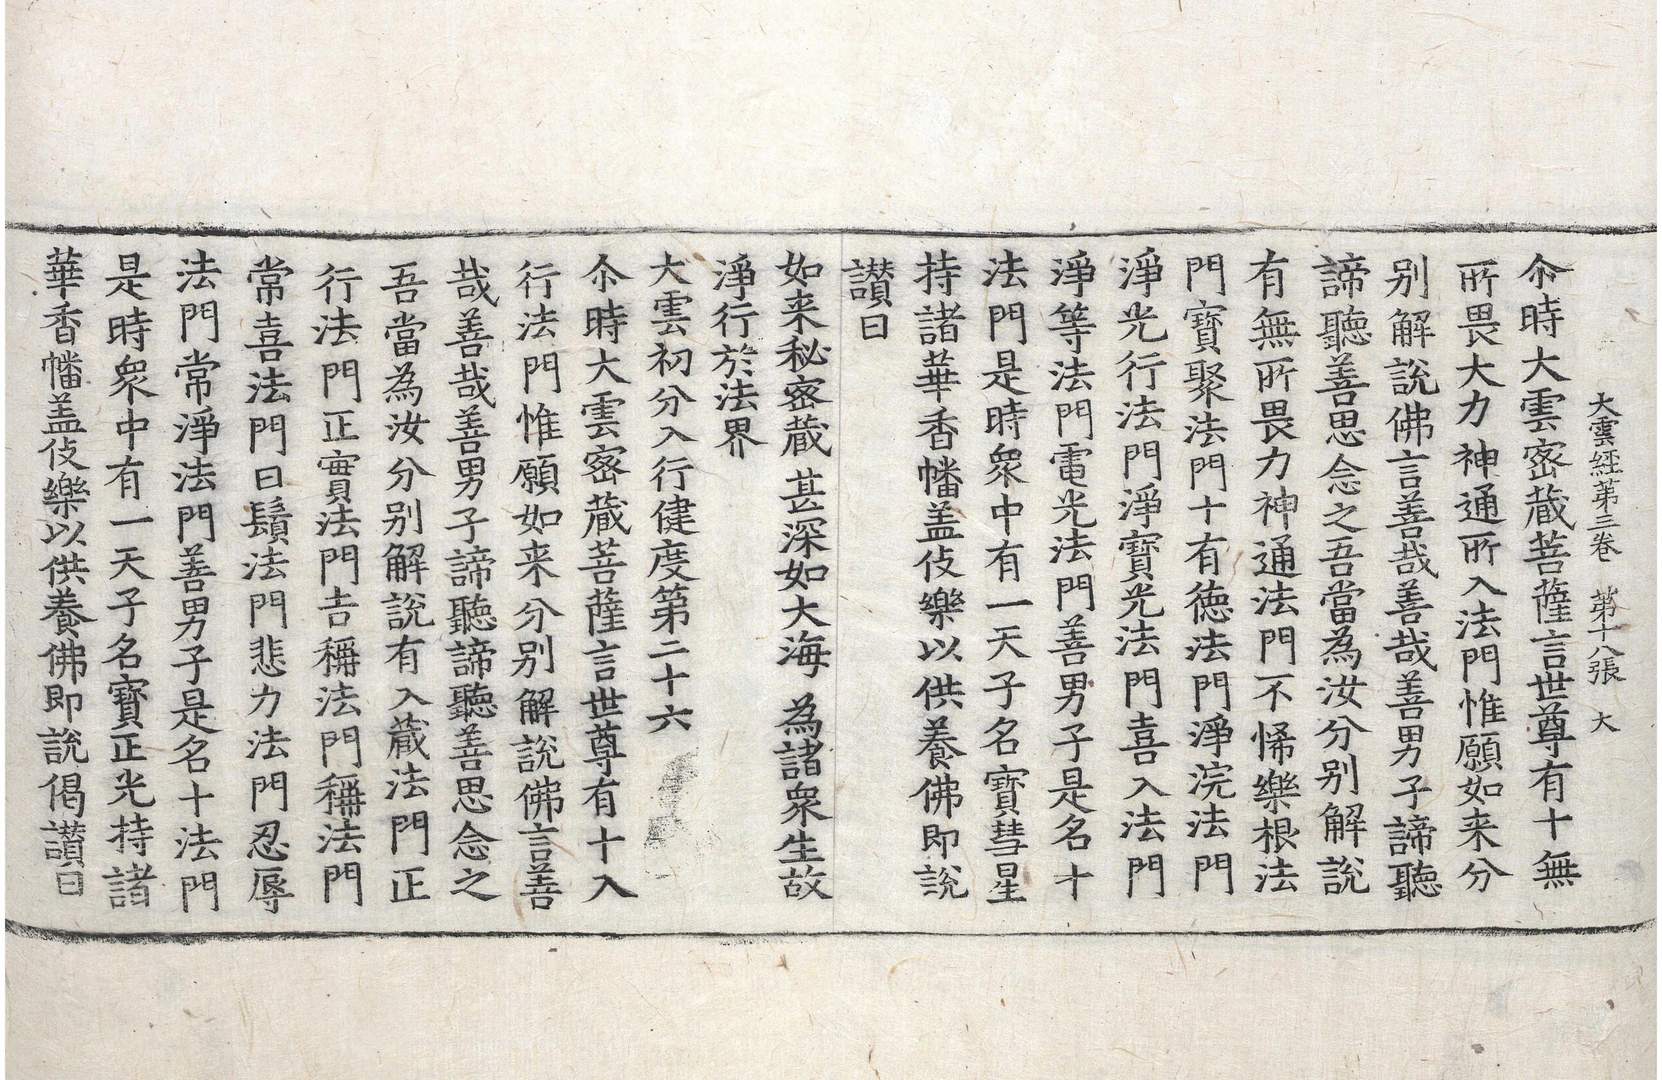 大雲經第三卷 第十八張 大
尒時大雲密蔵菩薩言世尊有十無
所畏大力神通所入法門惟願如来分
别解說佛言善哉善哉善男子諦聽
諦聽善思念之吾當為汝分别解說
有無所畏力神通法門不悕樂根法
門寶聚法門十有徳法門淨浣法門
淨光行法門淨寶光法門喜入法門
淨等法門電光法門善男子是名十
法門是時衆中有一天子名寶彗星
持諸華香幡盖伎樂以供養佛即說
讃曰
如来秘密蔵 甚深如大海 為諸衆生故
淨行於法界
大雲初分入行健度第二十六
尒時大雲密蔵菩薩言世尊有十入
行法門惟願如来分别解說佛言善
哉善哉善男子諦聽諦聽善思念之
吾當為汝分别解說有入蔵法門正
行法門正實法門吉稱法門稱法門
常喜法門日鬚法門悲力法門忍辱
法門常淨法門善男子是名十法門
是時衆中有一天子名寶正光持諸
華香幡盖伎樂以供養佛即說偈讃曰